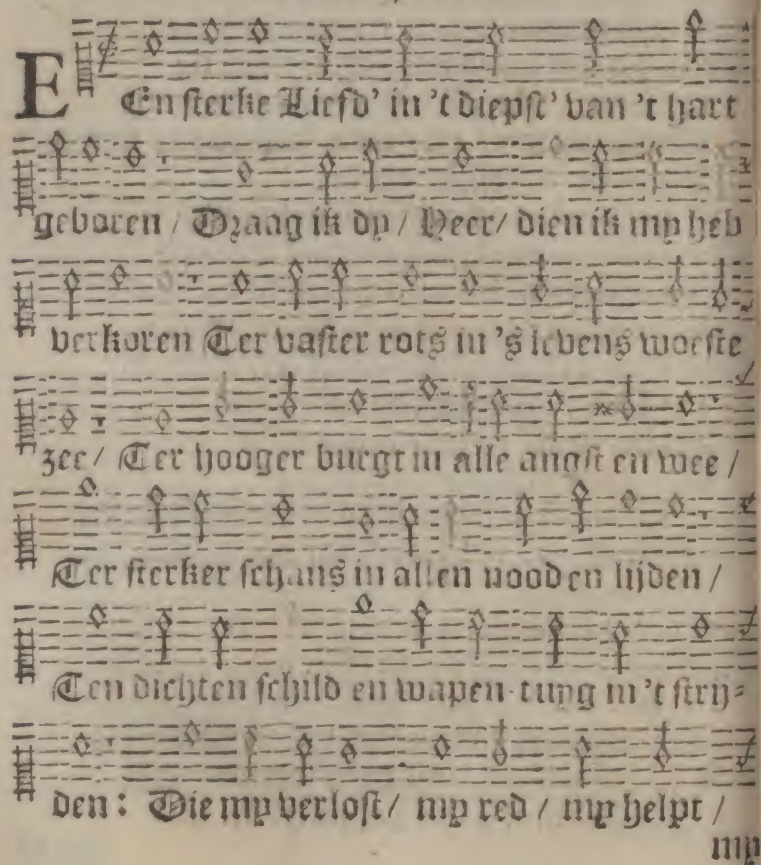 EEn sterke Liefd' in 't diepst' van 't hart
geboren / Draag ik dy / Heer / dien ik my heb
verkoren Ter vaster rots in 's levens woeste
zee / Ter hooger burgt in alle angst en wee /
Ter sterker schans in allen nood en lijden /
Ten dichten schild en wapen-tuyg in 't strij-
den: Die my verlost / my red / my helpt /
my